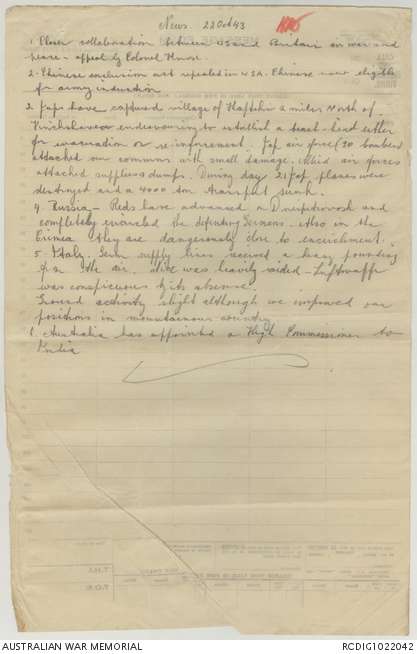 News. 22 Oct 43
1. Closer collaboration between and Britain on war and
peace - appeal by Colonel
2. Chinese exclusion act repealed in USA. Chinese now eligible
for army induction
3. Japs have captured village of 2 miles North of
endeavouring to establish a beach-head either
for evacuation or re-inforcement. Jap air force (20 bombers)
attacked our with small damage. Allied air forces
attacked supplies & dumps. During day 21 Jap planes were
destroyed and a 4000 ton transport sunk.
4. Russia - Reds have advanced on and
completely encircled the defending Germans. Also in the
Crimea they are dangerously close to encirclement.
5. Italy. Germ supply lines received a heavy pounding
from the air. was heavily raided - Luftwaffe
was conspicuous by its absence.
Ground activity slight although we improved our
positions in mountainous country
6. Australia has appointed a High Commissioner to
India
AUSTRALIAN WAR MEMORIAL
RCDIG1022042